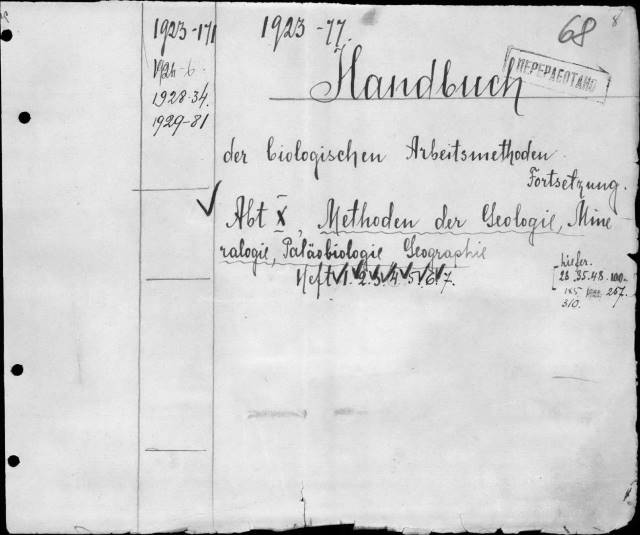 1923-171
1924-6
1928-34.
1929-81
1923-77.
68
8
ПЕРЕРАБОТАНО
Handbuch
der biologischen Arbeitsmethoden.
Fortsetzung.
Abt X, Methoden der Geologie, Mine
ralogie, Paläobiologie Geographie
Heft 1. 2. 3. 4. 5. 6. 7.
Liefer.
28. 35. 48. 100.
185 257.
310.